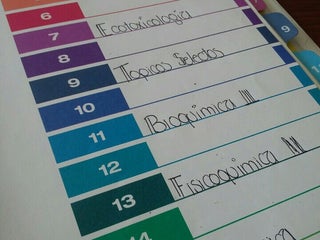 6
7 Ecotoxicología
8
9 Tópicos Selectos
10
11 Bioquímica III
12
13 Fisicoquímica
14
9